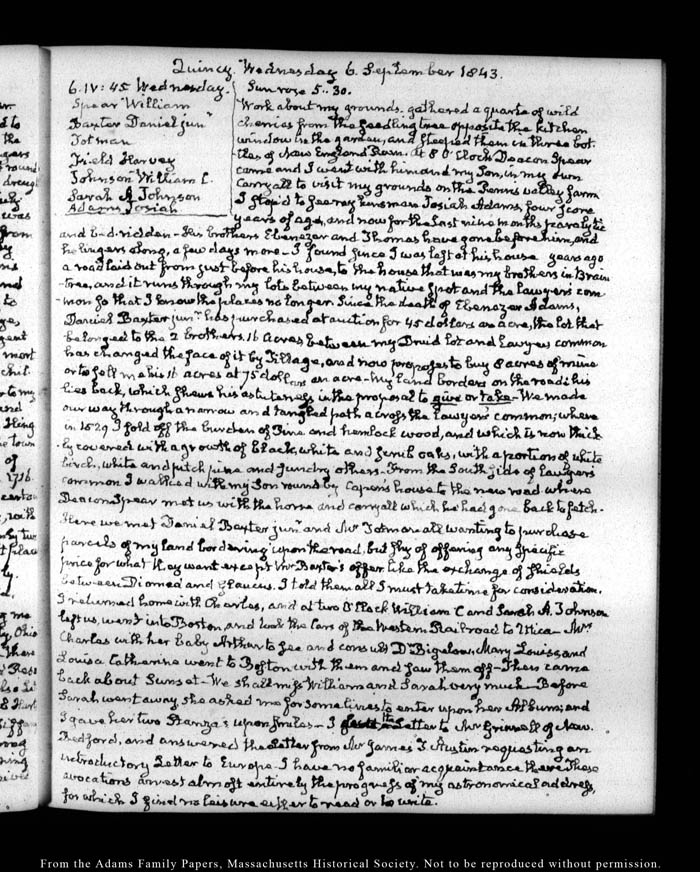 Quincy. Wednesday 6. September 1843.
6. IV: 45 Wednesday.
Spear William
Baxter Daniel junr
Totman
Field Harvey
Johnson William C.
Sarah A Johnson
Adams Josiah
Sun rose 5..30.
Work about my grounds. gathered a quarte of wild
cherries from the seedling tree opposite the kitchen
window in the garden, and steeped them in three bot-
tles of New England Rum. At 8 O'Clock Deacon Spear
came and I went with him and my Son, in my own
Carryall to visit my grounds on the Penns valley farm
I stop'd to see my kinsman Josiah Adams, four score
years of age, and now for the last nine months paralytic
and bed-ridden - His brothers Ebenezer and Thomas have gone before him, and
he lingers along, a few days more - I found since I was last at his house years ago
a road laid out from just before his house, to the house that was my brothers in Brain-
tree, and it runs through my lots between my native spot and the lawyer's com-
mon so that I know the places no longer. Since the death of Ebenezer Adams,
Daniel Baxter junr. has purchased at auction for 45 dollars an acre, the lot that
belonged to the 2 brothers. 16 acres between my Druid lot and Lawyers common
has changed the face of it by Tillage, and now proposes to buy 8 acres of mine
or to sell me his 16 acres at 75 dollars an acre - my land borders on the road: his
lies back, which shews his astuteness in the proposal to give or take - We made
our way through a narrow and tangled path across the Lawyer's common; where
in 1829 I sold off the burden of Pine and hemlock wood, and which is now thick-
ly covered with a growth of black, white and scrub oaks, with a portion of white
birch, white and pitch pine and sundry others. From the South side of Lawyer's
common I walked with my Son round by Capen's house to the new road where
Deacon Spear met us with the horse and carryall which he had gone back to fetch.
Here we met Daniel Baxter junr. and Mr Totman all wanting to purchase
parcels of my land bordering upon the road, but shy of offering any specific
price for what they want except Mr Baxter's offer, like the exchange of shields
between Diomed and Glaucus. I told them all I must take time for consideration.
I returned home with Charles, and at two O'Clock William C and Sarah A. Johnson
left us, went into Boston, and took the Cars of the Western Railroad to Utica - Mrs
Charles with her baby Arthur to see and consult Dr Bigelow, Mary Louisa, and
Louisa Catherine went to Boston with them and saw them off - Then came
back about Sunset - We shall miss William and Sarah very much - Before
Sarah went away, she asked me for some lines to enter upon her Album; and
I gave her two Stanza's upon smiles - I the Letter to Mr Grinnell of New-
Bedford, and answered the Letter from Mr James T. Austin requesting an
introductory Letter to Europe. I have no familiar acquaintance there. These
avocations arrest almost entirely the progress of my astronomical address,
for which I find no leisure either to read or to write.
From the Adams Family Papers, Massachusetts Historical Society. Not to be reproduced without permission.